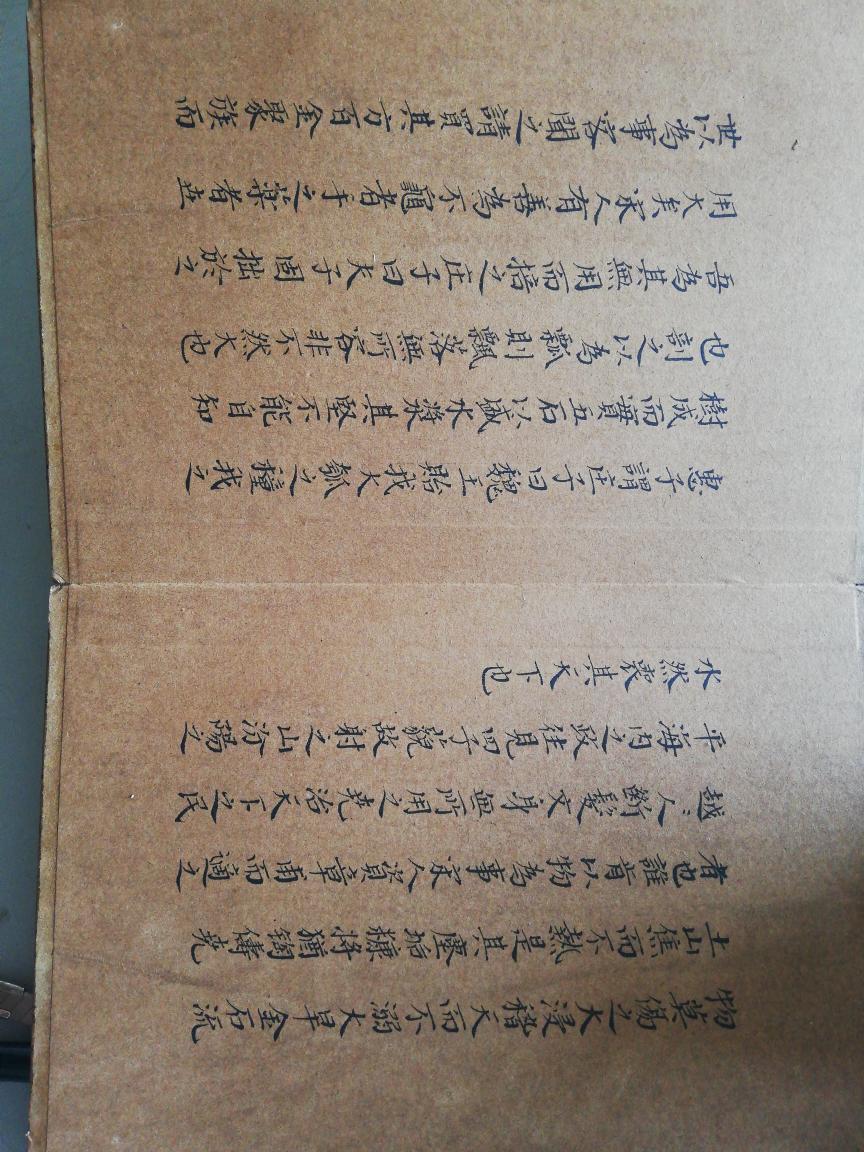 物莫傷之大浸稽天而不溺大旱金石流
土山焦而不熱是其塵垢糠將猶鑄堯
者也誰肯以物為事宋人資章甫而適之
越〻人斷髮文身無所用之堯治天下之民
平海內之政往見四子藐故射之山汾陽之
水然喪其天下也
惠子謂庄子曰魏王貽我大瓠之種我之
樹成而實五石以盛水漿其堅不能自知
也剖之以為瓢則瓢落無所容非不然大也
吾為其無用而掊之庄子曰夫子固拙於之
用大矣宋人有善為不龜者手之藥者世
世以為事客聞之請買其方百金聚族而